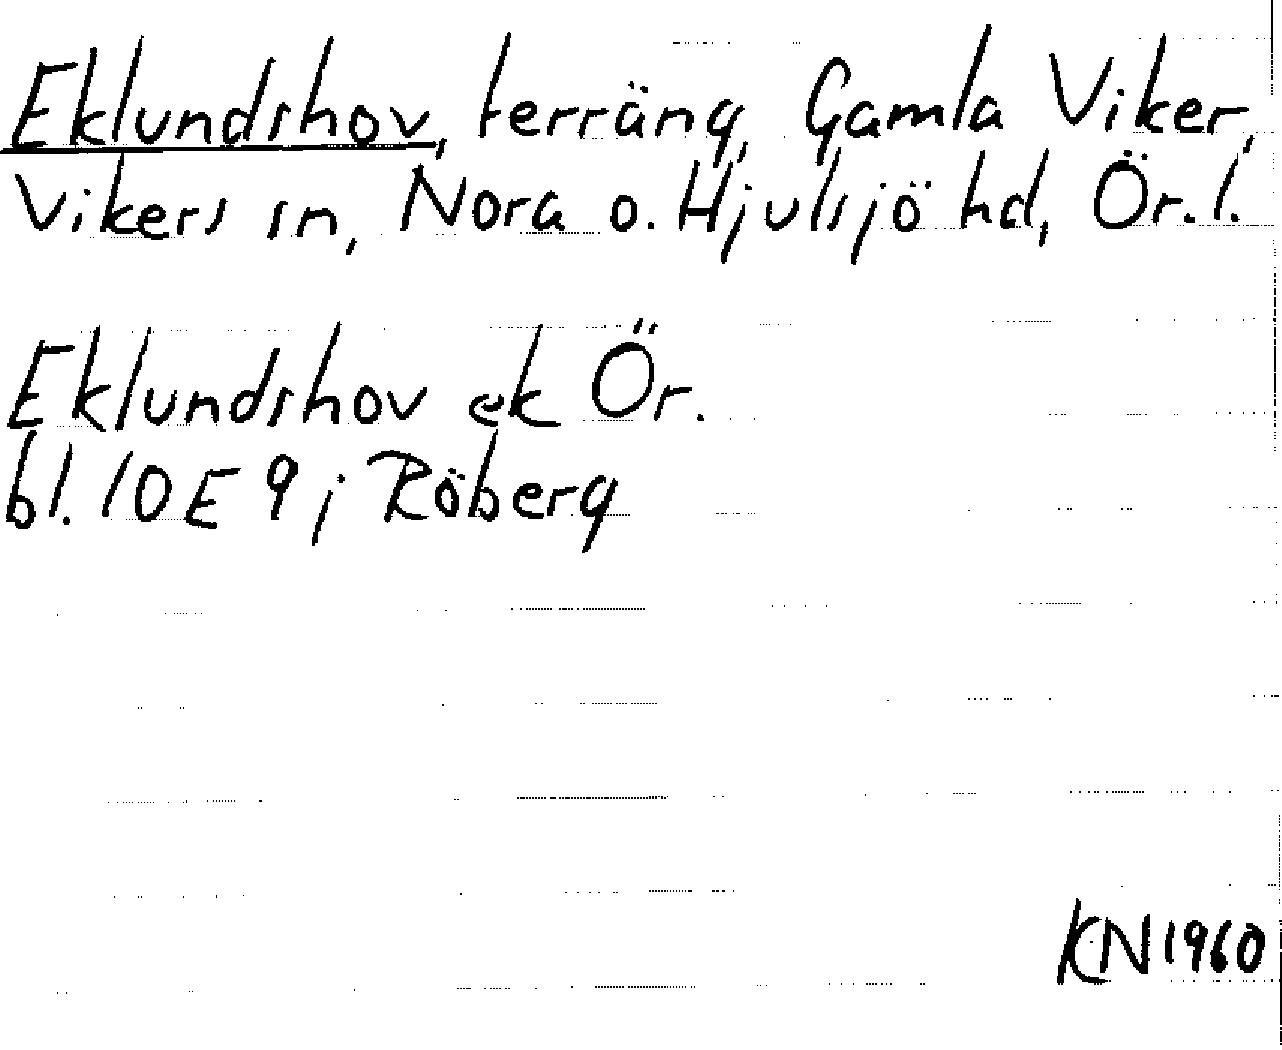 Eklundshov, terräng, Gamla Viker,
Vikers sn, Nora o. Hjulsjö hd, Ör. l.
Eklundshov ek Ör.
bl. 10 E 9 j Röberg
KN 1960